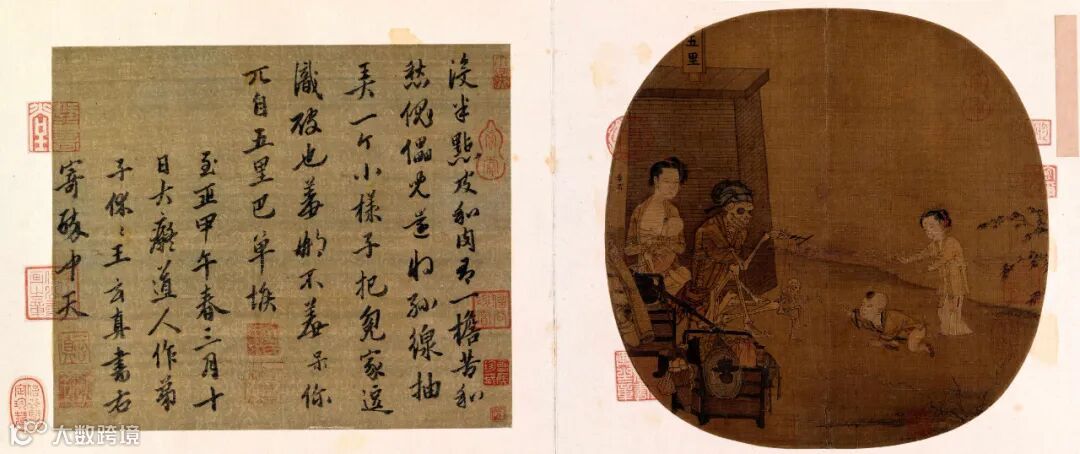 没半點皮和肉有一擔苦和
愁傀儡兒還將絲線抽
弄一个小樣子把冤家逗
識破也羞那不羞呆你
兀自五里巴单堠
至正甲午春三月十
日大癡道人作弟
子休〻王玄真書右
寄醉中天
五里
大数跨境